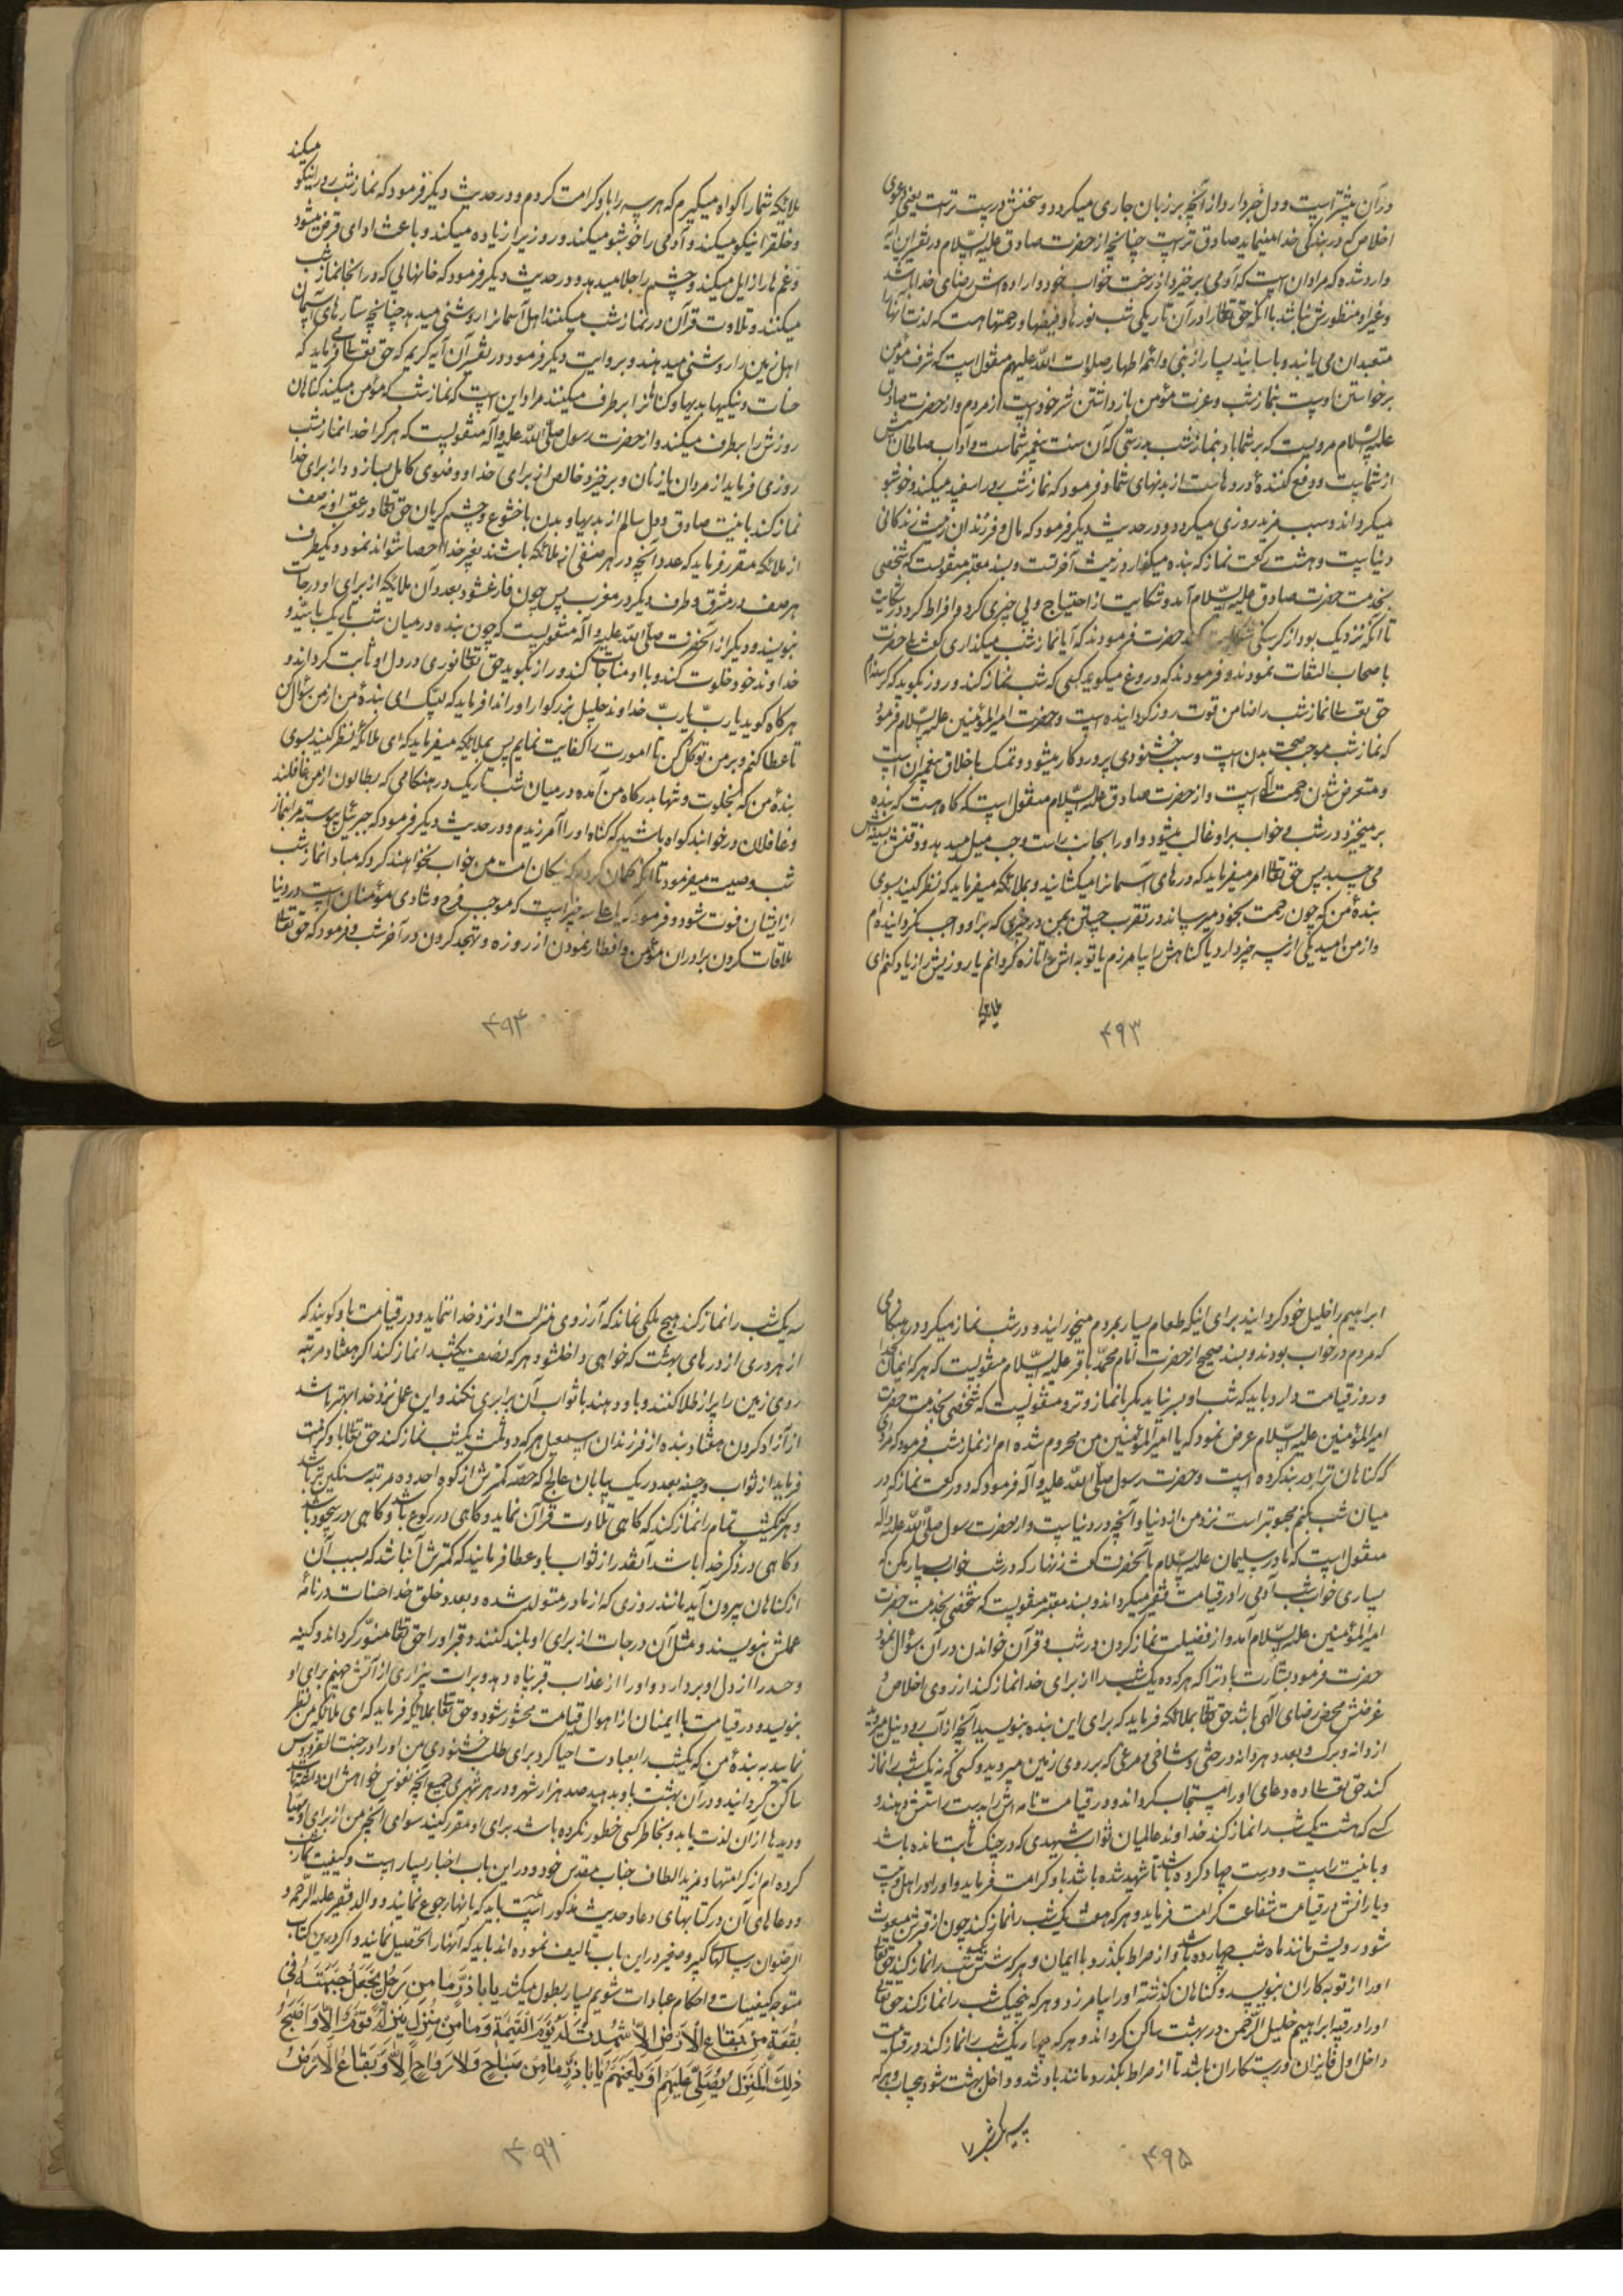 در آن پیشتر است و دل خبردار دارد از آنچه بر زبان جاری میکردد و سخنش درست تر است یعنی دعوی
اخلاص که در بندگی خدا مینماید صادق تر است چنانچه از حضرت صادق علیه السّلام در تفسیر این آیه
وارد شده که مراد آن است که آدمی برخیزد از رخت خواب خود و اراده اش رضای خدا باشد
و غیر او منظورش نباشد با آنکه حق تعالی را در آن تاریکی شب نورها و فیضها و رحمتها هست که لذت آنها را
متعبدان می یابند و با سانید بسیار از نبی و ائمه اطهار صلوات اللّه علیهم منقول است که شرف مؤمن
برخواستن اوست بنماز شب و عزت مؤمن بازداشتن شر خود است از مردم و از حضرت صادق
علیه السّلام مرویست که بر شما باد بنماز شب بدرستی که آن سنت پیغمبر شماست و آداب صالحان پیش
از شماست و دفع کننده دردهاست از بدنهای شما و فرمود که نماز شب رو را سفید میکند و خوشبو
میکرداند و سبب مزید روزی میکردد و در حدیث دیکر فرمود که مال و فرزندان زینت زندکانی
دنیاست و هشت رکعت نماز که بنده میکذارد زینت آخرتست و بسند معتبر منقولست که شخصی
بخدمت حضرت صادق علیه السّلام آمد و شکایت از احتیاج و بی چیزی کرد و افراط کرد در شکایت
تا آنکه نزدیک بود از کرسنکی شکایت کند حضرت فرمودند که آیا نماز شب میکذاری گفت بلی حضرت
با صحاب التفات نمودند و فرمودند که دروغ میکوید کسی که شب نماز کند و روز بکوید که کرسنه ام
حق تعالی نماز شب را ضامن قوت روز کردانیده است و حضرت امیر المؤمنین علیه السّلام فرمود
که نماز شب موجب صحت بدن است و سبب خشنودی پروردکار میشود و تمسک باخلاق پیغمبران است
و متعرض شدن رحمت الهی است و از حضرت صادق علیه السّلام منقول است که کاه هست که بنده
برمیخیزد در شب و خواب بر او غالب میشود و او را بجانب راست و چپ میل میدهد و ذقنش بسینه اش
می چسبد پس حق تعالی امر میفرماید که درهای آسمانرا میکشایند و بملائکه میفرماید که نظر کنید بسوی
بنده من که چون زحمت بخود میرساند در تقرب جستن بمن در چیزی که بر او واجب نکردانیده ام
و از من امید یکی از سه چیز دارد یا کناهش را بیامرزم یا توبه اش را تازه کردانم یا روزیش را زیاد کنم ای
ملائکه
۴۹۳
میکند
ملائکه شما را کواه میکیرم که هر سه را باو کرامت کردم و در حدیث دیکر فرمود که نماز شب رو را نیکو
و خلق را نیکو میکند و آدمی را خوشبو میکند و روزی را زیاده میکند و باعث ادای قرض میشود
و غم ها را زایل میکند و چشم را جلا میدهد و در حدیث دیکر فرمود که خانهائی که در آنجا نماز شب
میکنند و تلاوت قرآن در نماز شب میکنند اهل آسمانرا روشنی میدهد چنانچه ستارهای آسمان
اهل زمین را روشنی میدهند و بروایت دیکر فرمود در تفسیر آن آیه کریم که حق تعالی میفرماید که
حسنات و نیکیها بدیها و کناهانرا برطرف میکنند مراد این است که نماز شب که مؤمن میکند کناهان
روزش را برطرف میکند و از حضرت رسول صلّی اللّه علیه و آله منقولست که هر کرا خدا نماز شب
روزی فرماید از مردان یا زنان و برخیزد خالص از برای خدا و وضوی کامل بسازد و از برای خدا
نماز کند با نیت صادق و دل سالم از بدیها و بدن با خشوع و چشم کریان حق تعالی در عقب او نه صف
از ملائکه مقرر فرماید که عدد آنچه در هر صفی از ملائکه باشند بغیر خدا احصا نتواند نمود و یکطرف
هر صف در مشرق و طرف دیکر در مغرب پس چون فارغ شود بعدد آن ملائکه از برای او درجات
بنویسند و دیکر از آنحضرت صلّی اللّه علیه و آله منقولست که چون بنده در میان شب تاریک بایستد و
خداوند خود خلوت کند و با او مناجات کند و راز بکوید حق تعالی نوری در دل او ثابت کرداند و
هرکاه کوید یا ربّ یا ربّ خداوند جلیل بزرکوار او را ندا فرماید که لبّیک ای بنده من از من سؤال کن
تا عطا کنم و بر من توکل کن تا امورت را کفایت نمایم پس بملائکه میفرماید که ای ملائکه نظر کنید بسوی
بنده من که بخلوت و تنها بدرکاه من آمده در میان شب تاریک در هنکامی که بطالون از من غافلند
و غافلان در خوابند کواه باشید که کناه او را آمرزیدم و در حدیث دیکر فرمود که جبرئیل پیوسته مرا بنماز
شب وصیت میفرمود تا آنکه کمان کردم که نیکان امت من خواب نخواهند کرد که مبادا نماز شب
از ایشان فوت شود و فرمود که یا علی سه چیز است که موجب فرح و شادی مؤمنان است در دنیا
ملاقات کردن برادران مؤمن و افطار نمودن از روزه و تهجد کردن در آخر شب و فرمود که حق تعالی
۴۹۴
ابراهیم را خلیل خود کردانید برای اینکه طعام بسیار بمردم میخورانید و در شب نماز میکرد در هنکامی
که مردم در خواب بودند و بسند صحیح از حضرت امام محمّد باقر علیه السّلام منقولست که هر که ایمان بخدا
و روز قیامت دارد باید که شب او بسر نیاید مکر با نماز وتر و منقولست که شخصی بخدمت حضرت
امیر المؤمنین علیه السّلام عرض نمود که یا امیر المؤمنین من محروم شده ام از نماز شب فرمود که مردی
که کناهان ترا در بند کرده است و حضرت رسول صلّی اللّه علیه و آله فرمود که دو رکعت نماز که در
میان شب بکنم محبوبتر است نزد من از دنیا و آنچه در دنیاست و از حضرت رسول صلّی اللّه علیه و آله
منقول است که مادر سلیمان علیه السّلام بآنحضرت گفت زنهار که در شب خواب بسیار مکن که
بسیاری خواب شب آدمی را در قیامت فقیر میکرداند و بسند معتبر منقولست که شخصی بخدمت حضرت
امیر المؤمنین علیه السّلام آمد و از فضیلت نماز کردن در شب و قرآن خواندن در آن سؤال نمود
حضرت فرمود بشارت باد ترا که هر که ده یک شب را از برای خدا نماز کند از روی اخلاص و
غرضش محض رضای الهی باشد حق تعالی بملائکه فرماید که برای این بنده بنویسید آنچه از آب رود نیل میروید
از دانه و برک و بعدد هر دانه و درختی و شاخی و مرغی که بر روی زمین میروید و کسی که نه یک شب را نماز
کند حق تعالی ده دعای او را مستجاب کرداند و در قیامت نامه اش را بدست راستش دهند و
کسی که هشت یک شب را نماز کند خداوند عالمیان ثواب شهیدی که در جنک ثابت مانده باشد
و با نیت راست و درست جهاد کرده باشد تا شهید شده باشد باو کرامت فرماید و او را در اهل بیت
و یارانش در قیامت شفاعت کرامت فرماید و هر که هفت یک شب را نماز کند چون از قبرش مبعوث
شود رویش مانند ماه شب چهارده باشد و از صراط بکذرد با ایمان و هر که شش یک شب را نماز کند حق تعالی
او را از توبه کاران بنویسد و کناهان کذشته او را بیامرزد و هر که پنج یک شب را نماز کند حق تعالی
او را در قبه ابراهیم خلیل الرّحمن در بهشت ساکن کرداند و هر که چهار یک شب را نماز کند در قیامت
داخل اول فایزان و رستکاران باشد تا از صراط بکذرد مانند باد تند و داخل بهشت شود بیحساب و هر که
۴۹۵
سه یک شب را نماز کند هیچ ملکی نماند که آرزوی منزلت او نزد خدا ننماید و در قیامت باو کویند که
از هر دری از درهای بهشت که خواهی داخل شو و هر که نصف یکشب را نماز کند اگر هفتاد مرتبه
روی زمین را پر از طلا کنند و باو دهند با ثواب آن برابری نکند و این عمل نزد خدا بهتر باشد
از آزاد کردن هفتاد بنده از فرزندان اسمعیل هر که دو ثلث یکشب نماز کند حق تعالی باو کرامت
فرماید از ثواب و حسنه بعدد ریک بیابان عالج که حصّه کمترش از کوه احد ده مرتبه سنکین تر باشد
و هر که یکشب تمام را نماز کند که کاهی تلاوت قرآن نماید و کاهی در رکوع باشد و کاهی در سجود باشد
و کاهی در ذکر خدا باشد آنقدر از ثواب باو عطا فرمایند که کمترش آن باشد که بسبب آن
از کناهان بیرون آید مانند روزی که از مادر متولد شده و بعدد خلق خدا حسنات در نامه
عملش بنویسند و مثل آن درجات از برای او بلند کنند و قبر او را حق تعالی منوّر کرداند و کینه
و حسد را از دل او بردارد و او را از عذاب قبر پناه دهد و برات بیزاری از آتش جهنم برای او
بنویسد و در قیامت با ایمنان از اهوال قیامت محشور شود و حق تعالی بملائکه فرماید که ای ملائکه من نظر
نمایید به بنده من که یکشب را بعبادت احیا کرد برای طلب خشنودی من او را در جنت الفردوس
ساکن کردانید و در آن بهشت باو بدهید صد هزار شهر و در هر شهری جمیع آنچه نفوس خواهش آن داشته باشد
و دیدها از آن لذت یابد و بخاطر کسی خطور نکرده باشد برای او مقرر کنید سوای آنچه من از برای او مهیا
کرده ام از کرامتها و مزید الطاف جناب مقدس خود و در این باب اخبار بسیار است و کیفیت نماز شب
و دعاهای آن در کتابهای دعا و حدیث مذکور است باید که بآنها رجوع نمایند و والد فقیر علیه الرّحمه و
الرّضوان رساله های کبیر و صغیر در این باب تالیف نموده اند باید که آنها را تحصیل نمایند و اگر در این کتاب
متوجه کیفیات و احکام عبادات شویم بسیار بطول میکشد یا اباذرّ ما من رجل یجعل جبهته فی
بقعة من بقاع الارض الّا شهدت له یوم القیمة و ما من منزل ینزله قوم الّا و اصبح
ذلک المنزل یصلّی علیهم او یلعنهم یا اباذرّ ما من صباح و لا رواح الّا و بقاع الارض
۴۹۶